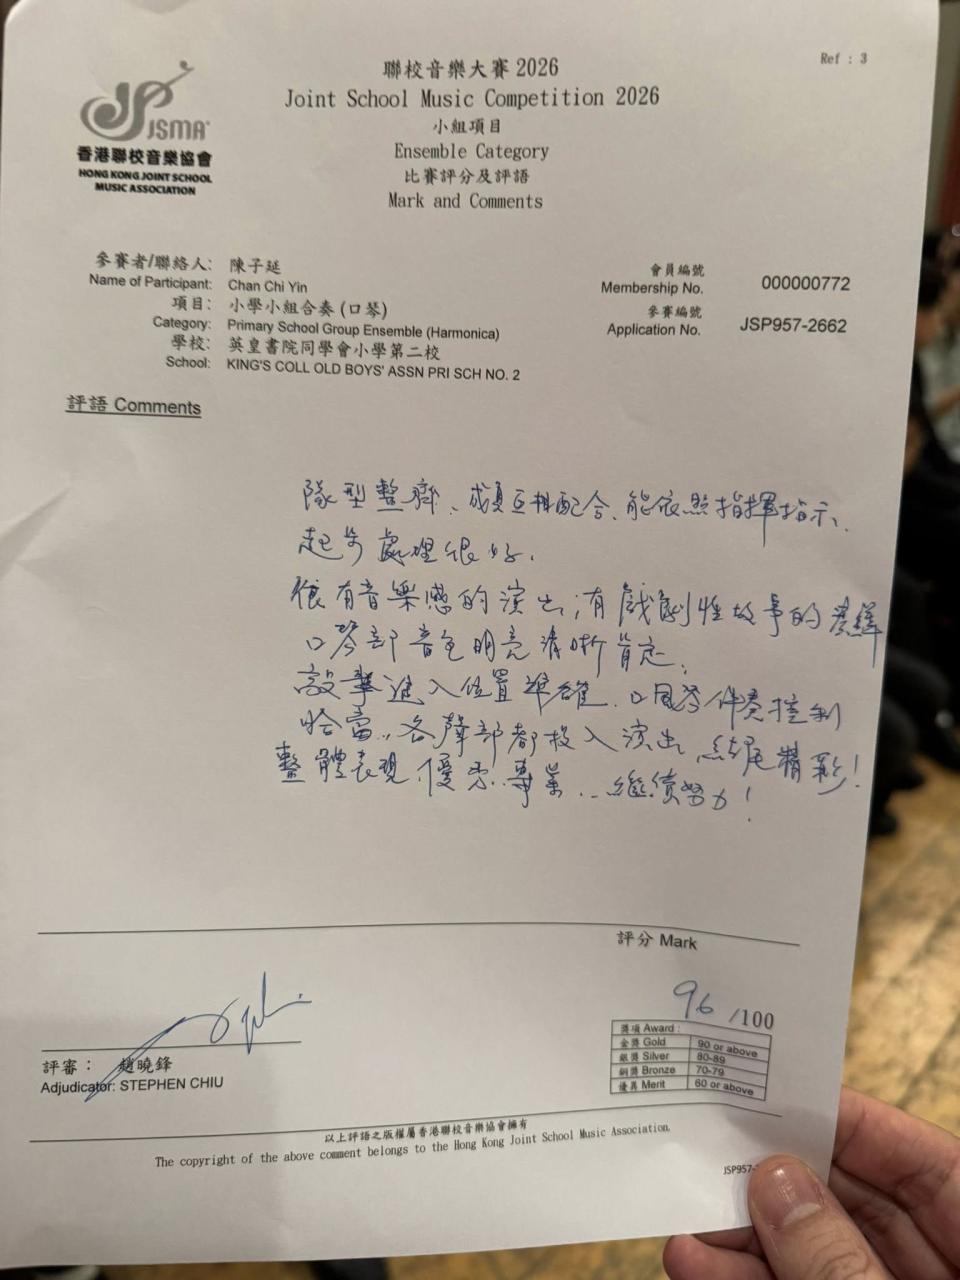 Ref : 3
聯校音樂大賽 2026
Joint School Music Competition 2026
小組項目
Ensemble Category
比賽評分及評語
Mark and Comments
JSMA
香港聯校音樂協會
HONG KONG JOINT SCHOOL
MUSIC ASSOCIATION
參賽者/聯絡人: 陳子延
Name of Participant: Chan Chi Yin
項目: 小學小組合奏 (口琴)
Category: Primary School Group Ensemble (Harmonica)
學校: 英皇書院同學會小學第二校
School: KING'S COLL OLD BOYS' ASSN PRI SCH NO. 2
會員編號
Membership No. 000000772
參賽編號
Application No. JSP957-2662
評語 Comments
隊型整齊、成員互相配合、能依照指揮指示、
起步處理很好.
很有音樂感的演出,有戲劇性故事的
口琴部音色明亮清晰肯定.
敲擊進入位置準確、口風琴伴奏控制
恰當、各聲部都投入演出、結尾精彩!
整體表現優秀、專業、繼續努力!
評分 Mark
96 /100
獎項 Award :
金獎 Gold 90 or above
銀獎 Silver 80-89
銅獎 Bronze 70-79
優異 Merit 60 or above
評審: 趙曉鋒
Adjudicator: STEPHEN CHIU
以上評語之版權屬香港聯校音樂協會擁有
The copyright of the above comment belongs to the Hong Kong Joint School Music Association.